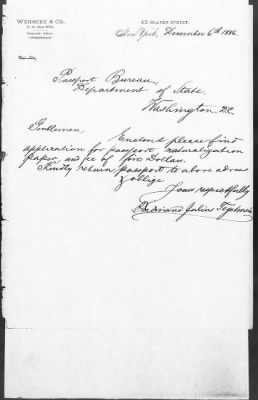 WEHNCKE & CO.
63 BEAVER STREET.
New York, December 6th 1886.
Passport Bureau
Department of State
Washington, D.C.
Gentlemen,
Enclosed please find
application for passport, naturalization
paper, and fee of five Dollars.
Kindly return passport to above adress
& oblige
Yours respectfully
Ferdinand Julius